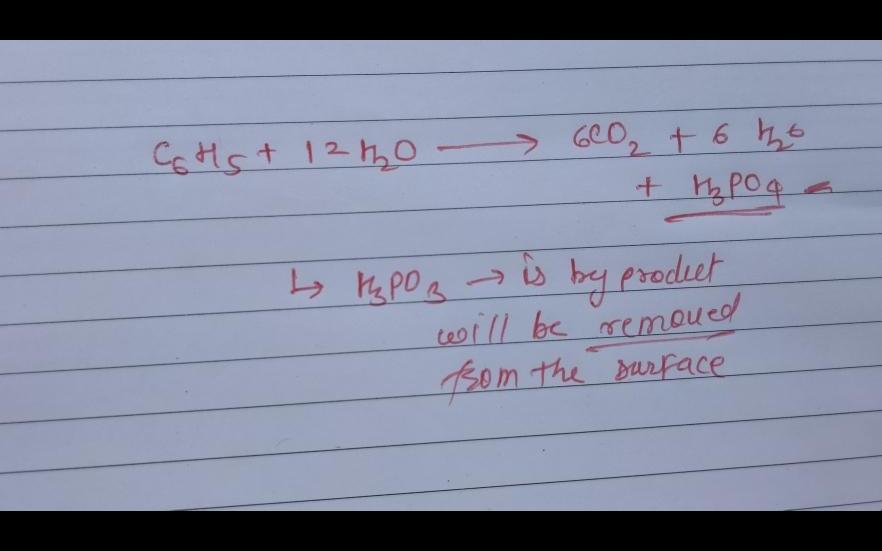 C₆H₅ + 12 H₂O ⟶ 6CO₂ + 6 H₂O
+ H₃PO₄
↳ H₃PO₃ → is by product
will be removed
from the surface